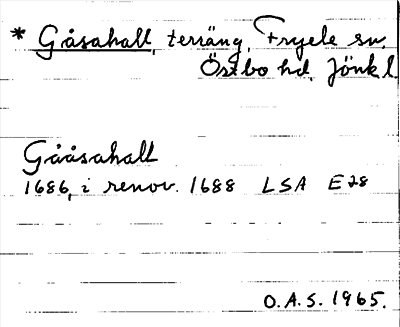 * Gåsahall, terräng, Fryele sn,
Östbo hd, Jönk l
Gååsahall
1686, i renov. 1688 LSA E28
O.A.S. 1965.